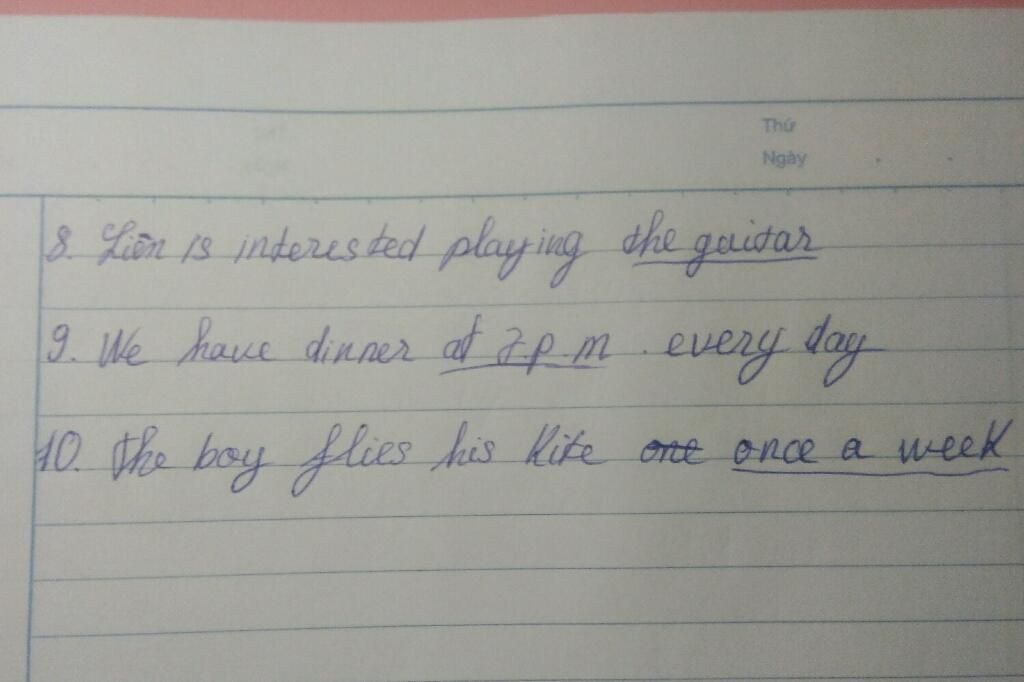 Thứ
Ngày
8. Liên is interested playing the gaitar
9. We have dinner at 7.p.m. every day
10. The boy flies his kite one once a week